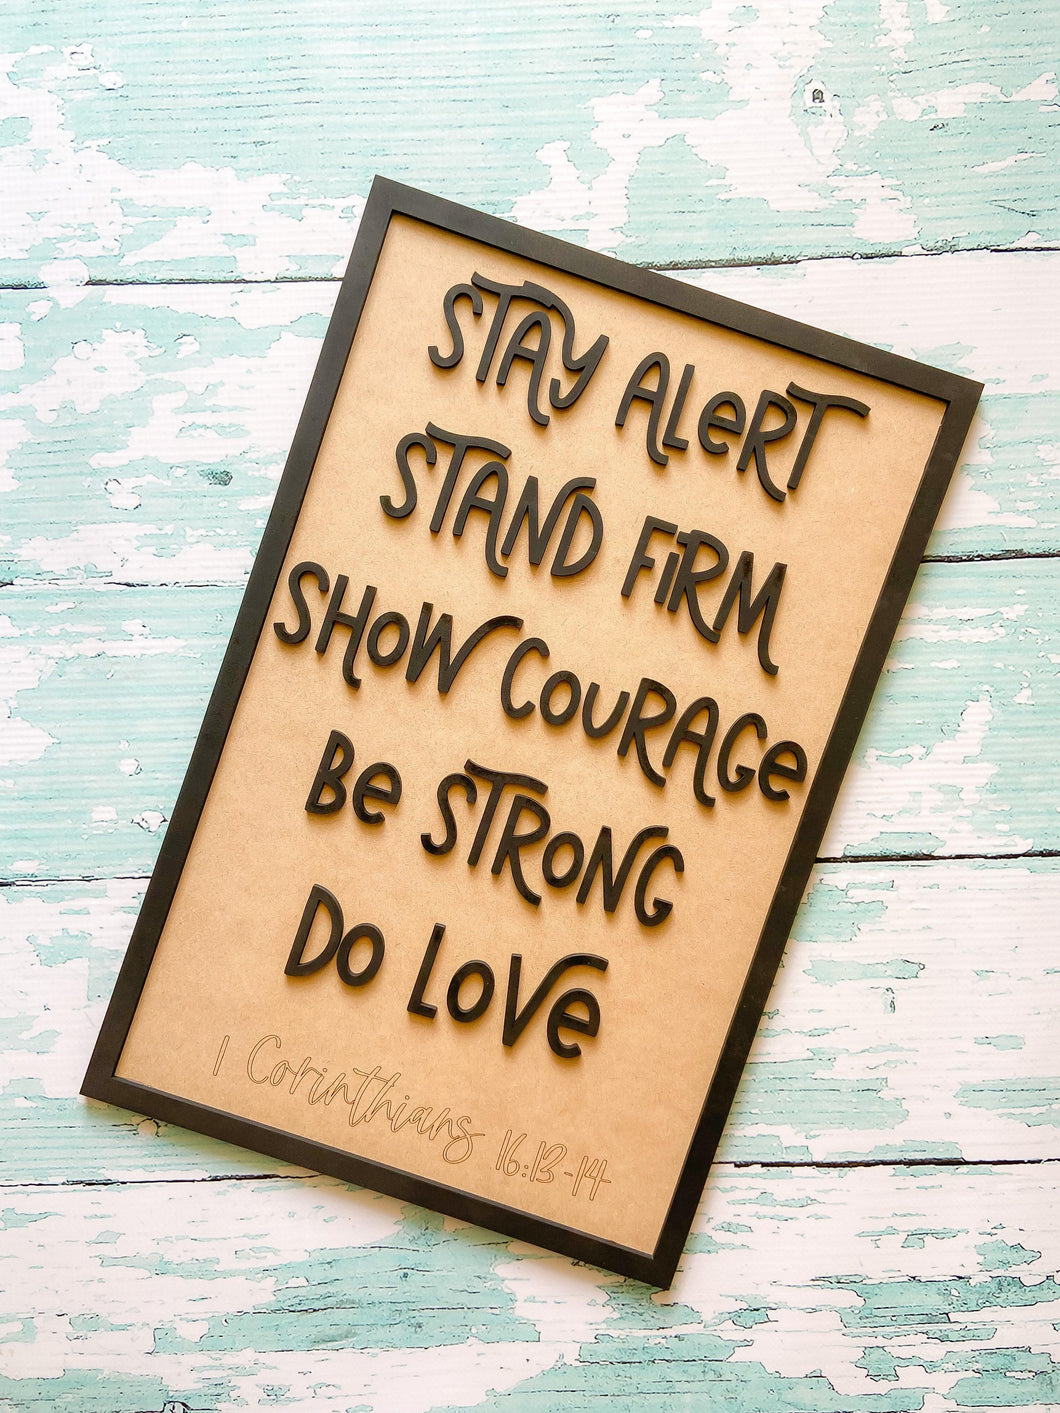 STAY ALeRT
STAND FiRM
SHOW COURAGe
Be STRONG
Do LoVe
1 Corinthians 16:13-14